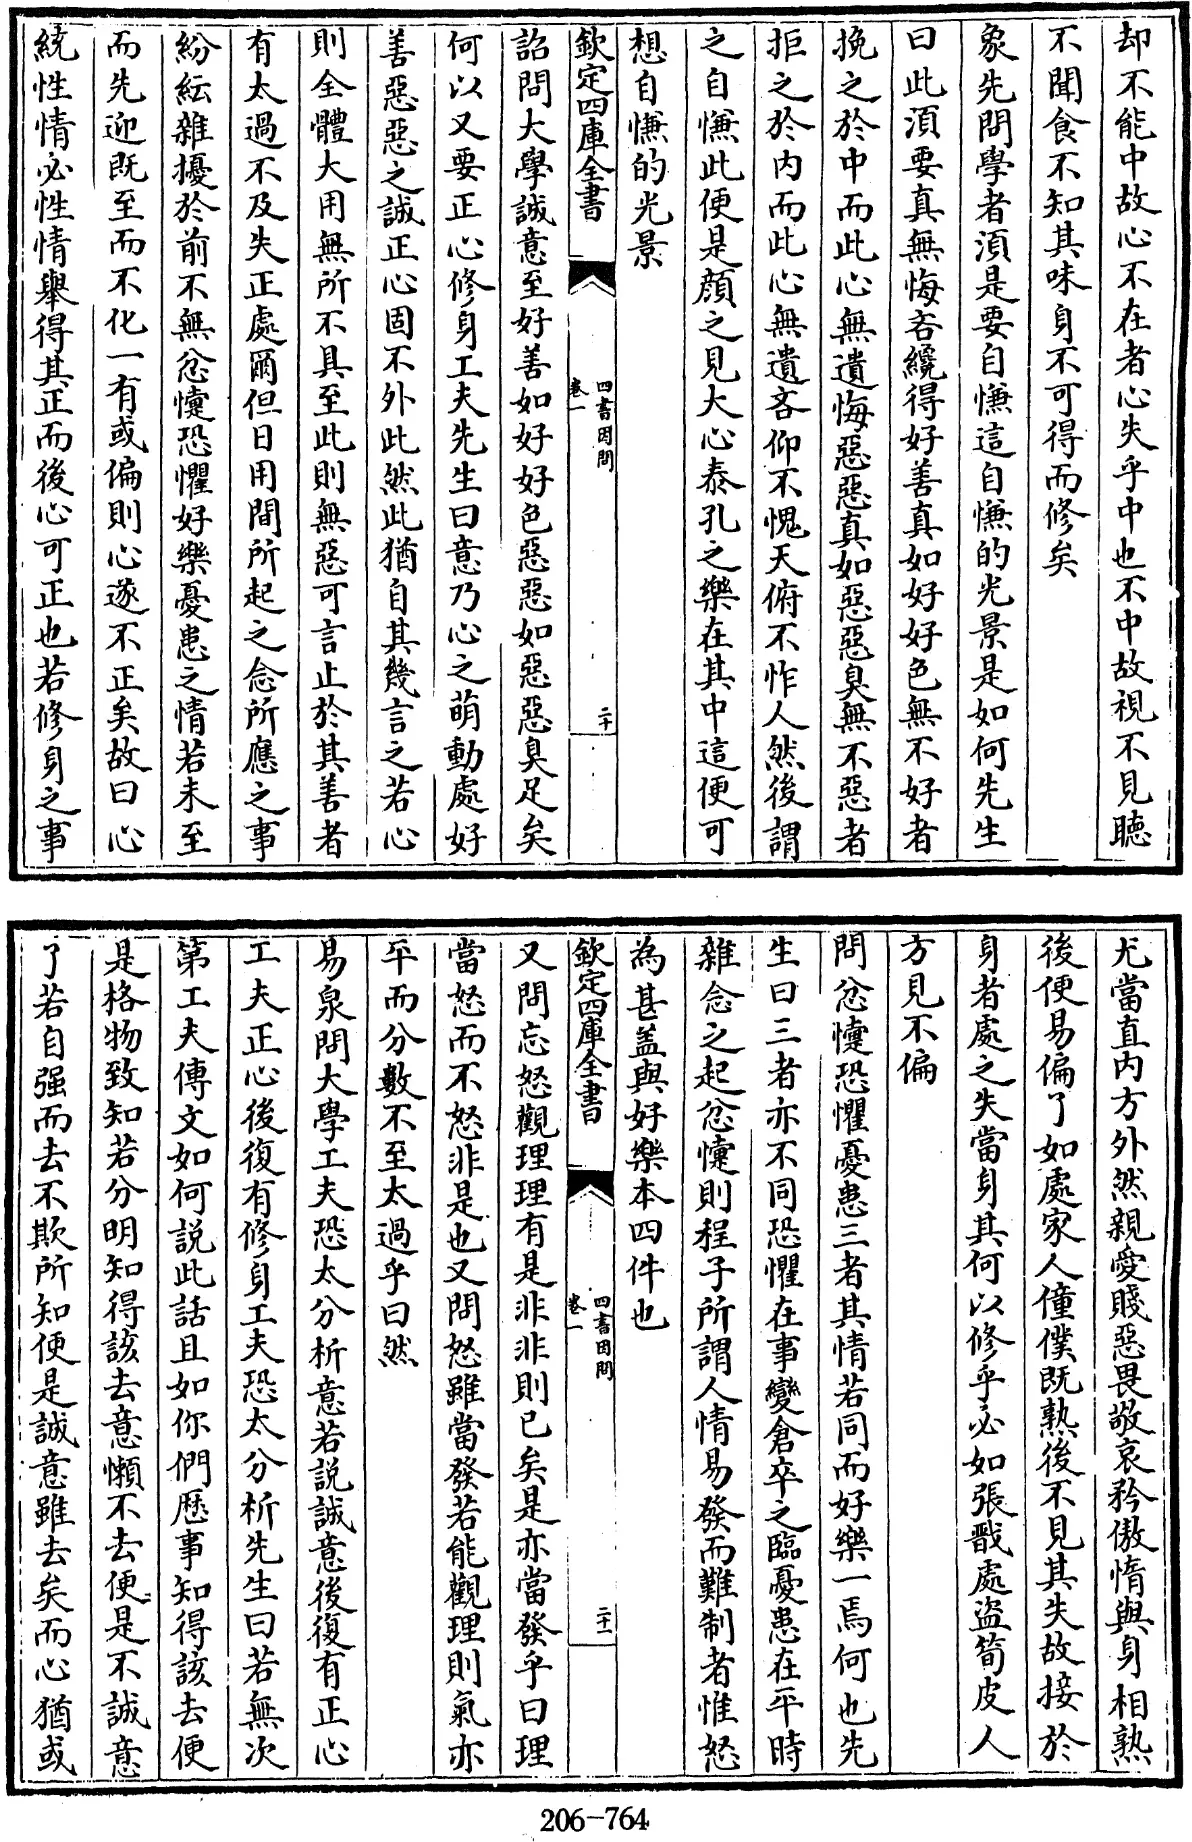 却不能中故心不在者心失乎中也不中故視不見聽
不聞食不知其味身不可得而修矣
象先問學者須是要自慊這自慊的光景是如何先生
曰此須要真無悔吝纔得好善真如好好色無不好者
挽之於中而此心無遺悔惡惡真如惡惡臭無不惡者
拒之於内而此心無遺吝仰不愧天俯不怍人然後謂
之自慊此便是顔之見大心泰孔之樂在其中這便可
想自慊的光景
欽定四庫全書
四書因問
卷一
二十
詔問大學誠意至好善如好好色惡惡如惡惡臭足矣
何以又要正心修身工夫先生曰意乃心之萌動處好
善惡惡之誠正心固不外此然此猶自其幾言之若心
則全體大用無所不具至此則無惡可言止於其善者
有太過不及失正處爾但日用間所起之念所應之事
紛紜雜擾於前不無忿懥恐懼好樂憂患之情若未至
而先迎既至而不化一有或偏則心遂不正矣故曰心
統性情必性情舉得其正而後心可正也若修身之事
尤當直内方外然親愛賤惡畏敬哀矜傲惰與身相熟
後便易偏了如處家人僮僕既熟後不見其失故接於
身者處之失當身其何以修乎必如張戩處盜筍皮人
方見不偏
問忿懥恐懼憂患三者其情若同而好樂一焉何也先
生曰三者亦不同恐懼在事變倉卒之臨憂患在平時
雜念之起忿懥則程子所謂人情易發而難制者惟怒
為甚盖與好樂本四件也
欽定四庫全書
四書因問
卷一
二十一
又問忘怒觀理理有是非非則已矣是亦當發乎曰理
當怒而不怒非是也又問怒雖當發若能觀理則氣亦
平而分數不至太過乎曰然
易泉問大學工夫恐太分析意若説誠意後復有正心
工夫正心後復有修身工夫恐太分析先生曰若無次
第工夫傳文如何説此話且如你們歷事知得該去便
是格物致知若分明知得該去意懶不去便是不誠意
了若自强而去不欺所知便是誠意雖去矣而心猶或
206-764